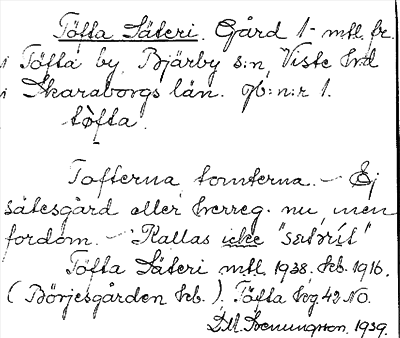 Töfta Säteri. Gård 1- mtl. fr.
i Töfta by, Bjärby s:n, Viste hrd
i Skaraborgs län. Jb:n:r 1.
tòfta.
Tofterna, tomterna. – Ej
sätesgård eller herreg. nu, men
fordom. – Kallas icke
Töfta Säteri mtl 1938. kb. 1916.
(Börjesgården kb.). Töfta hög 42 NO.
1939.